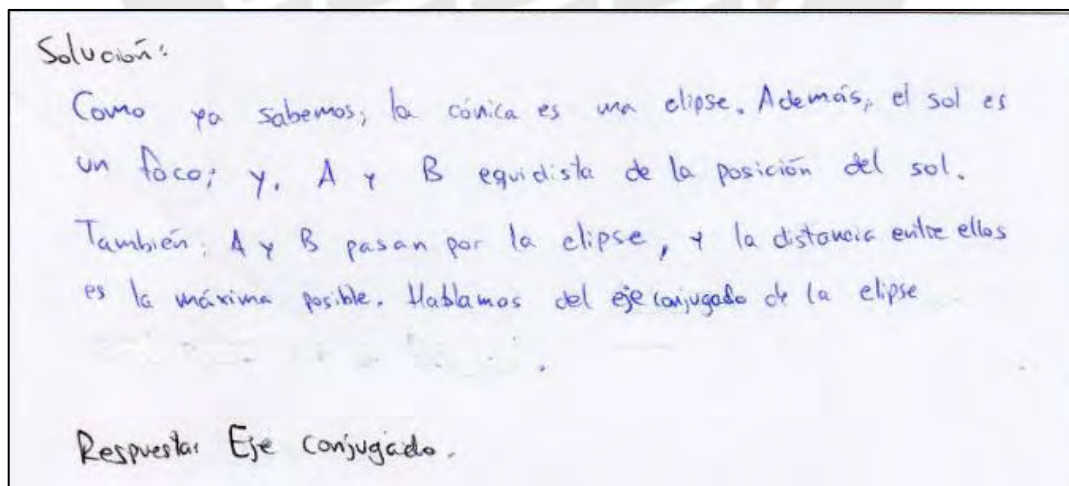 Solución:
Como ya sabemos; la cónica es una elipse. Además, el sol es
un foco; y, A y B equidista de la posición del sol.
También; A y B pasan por la elipse, y la distancia entre ellos
es la máxima posible. Hablamos del eje conjugado de la elipse
.
Respuesta: Eje conjugado.